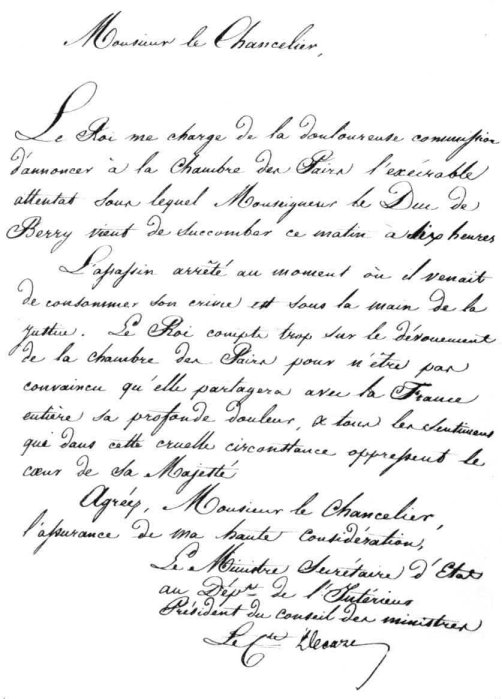 Monsieur le Chancelier,
Le Roi me charge de la douloureuse commission
d'annoncer à la Chambre des Pairs l'exécrable
attentat sous lequel Monseigneur le Duc de
Berry vient de succomber ce matin à six heures
L'assassin arrêté au moment où il venait
de consommer son crime est sous la main de la
justice. Le Roi compte trop sur le dévouement
de la chambre des Pairs pour n'être pas
convaincu qu'elle partagera avec la France
entière sa profonde douleur, & tous les sentimens
que dans cette cruelle circonstance oppressent le
cœur de sa Majesté
Agréez, Monsieur le Chancelier,
l'assurance de ma haute considération,
Le Ministre Secrétaire d'Etat
au Dépt. de l'Intérieur
Président du conseil des ministres
Le Cte Decaze